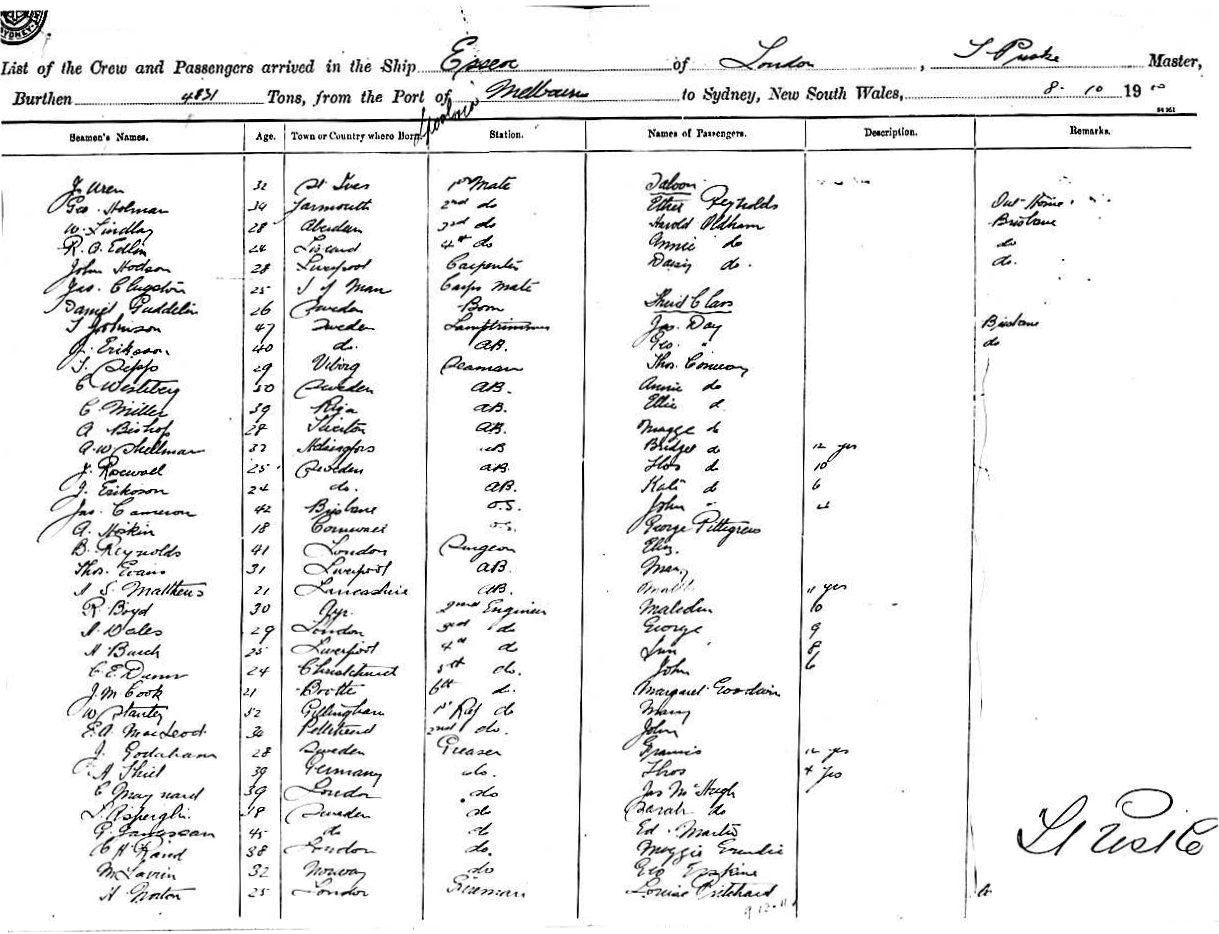 SYDNEY
List of the Crew and Passengers arrived in the Ship Essex of London, Master,
Burthen 4831 Tons, from the Port of Melbourne to Sydney, New South Wales, 8. 10 19
Seamen's Names. Age. Town or Country where Born. Station. Names of Passengers. Description. Remarks.
J. Uren 32 St Ives 1st Mate Saloon
Geo. Holman 34 Yarmouth 2nd do Reynolds
W. Findlay 28 Aberdeen 3rd do Harold Oldham Brisbane
R. O. Edlin 24 Liscard 4th do Annie do do
John Hodson 28 Liverpool Carpenter Daisy do. do.
Jas. Clugston 25 I of Man Carps Mate
Daniel 26 Sweden Third Class
Johnson 47 Sweden Lamptrimmer Jas. Day Brisbane
J. Erikson 40 do. AB. Geo. " do
29 Viborg Seaman Thos. Conway
C 50 Sweden AB. Annie do
C. Miller 39 Riga AB. Ellie d
A Bishop 28 Tiverton AB. Magge do
A. W. 32 Helsingfors Bridget do 12 yrs
J. 25 Sweden AB. Thos do 10
J. Erikson 24 do. AB. Kate do 6
Jas. Cameron 42 Brisbane O.S. John "
A. Hoskin 18 Cornwall George Pettigrew
B. Reynolds 41 London Surgeon Eliz.
Thos. Evans 31 Liverpool AB. Mary
S. Matthews 21 Lancashire AB. 11 yrs
R. Boyd 30 Ayr. 2nd Engineer Malcolm 10
Wales 29 London 3rd do George 9
25 Liverpool 4th do 8
C. E. Dunn 24 Christchurch 5th do. John 6
J. M. Cook 21 Bootle 6th d. Margaret Goodwin
W. Stanley 52 Gillingham 1st Ref do Mary
E. A. MacLeod 2nd do. John
J. 28 Sweden Greaser Francis 12 yrs
A 39 Germany do. Thos 4 yrs
C Maynard 39 London do Jas McHugh
Sweden do Sarah do
G. 45 do do Ed. Martin
C H 38 London do. Maggie
M 32 Norway do Geo Erskine
H Norton 25 London Fireman Louise Pritchard